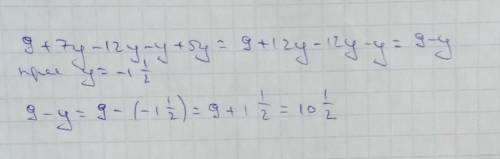 9+7y-12y-y+5y= 9+12y-12y-y= 9-y
при y= -1 1/2
9-y= 9-(-1 1/2)= 9+1 1/2= 10 1/2